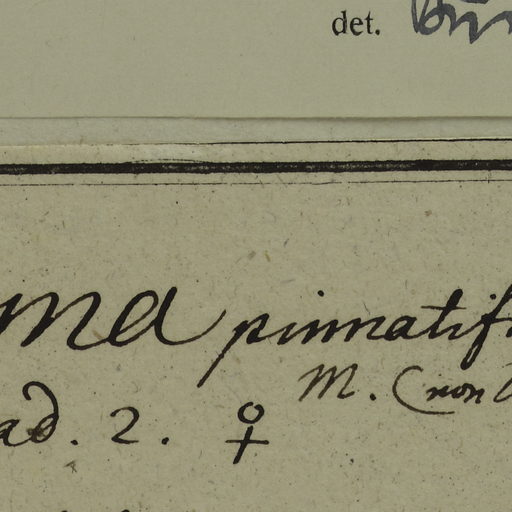 det.
ma pinnatif
M. (non
ad. 2. ♀